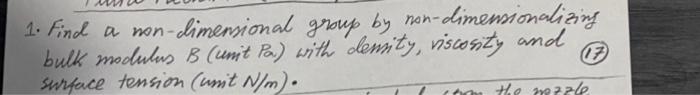 1. Find a non-dimensional group by non-dimensionalizing
bulk modulus B (unit Pa) with density, viscosity and
(17)
surface tension (unit N/m).
the nozzle